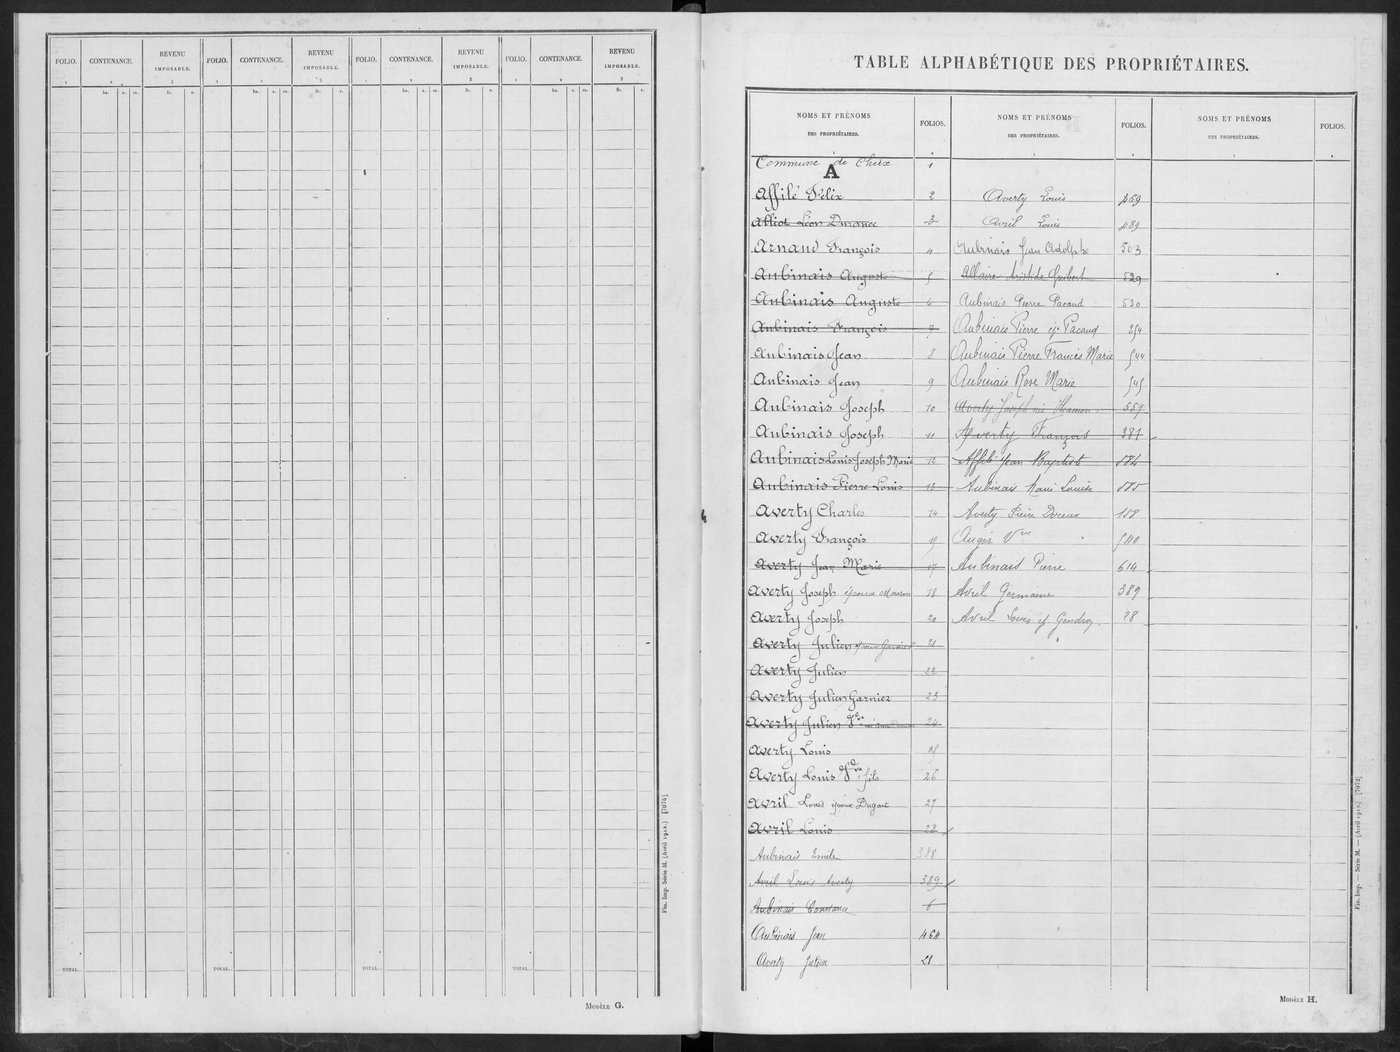 FOLIO. CONTENANCE. REVENU IMPOSABLE. FOLIO. CONTENANCE. REVENU IMPOSABLE. FOLIO. CONTENANCE. REVENU IMPOSABLE. FOLIO. CONTENANCE. REVENU IMPOSABLE.
1 2 3 1 2 3 1 2 3 1 2 3
ha. a. ca. fr. c. ha. a. ca. fr. c. ha. a. ca. fr. c. ha. a. ca. fr. c.
TOTAL. TOTAL. TOTAL. TOTAL.
Fin. Imp. Série M. (Avril 1912.) [7074]
MODÈLE G.
TABLE ALPHABÉTIQUE DES PROPRIÉTAIRES.
NOMS ET PRÉNOMS DES PROPRIÉTAIRES. FOLIOS.
Commune de Cheix 1
A
Affilé Félix 2
Alliot Léon Durance 3
Arnaud François 4
Aubinais Auguste 5
Aubinais Auguste 6
Aubinais François 7
Aubinais Jean 8
Aubinais Jean 9
Aubinais Joseph 10
Aubinais Joseph 11
Aubinais Louis Joseph Marie 12
Aubinais Pierre Louis 13
Averty Charles 14
Averty François 15
Averty Jean Marie 17
Averty Joseph époux 18
Averty Joseph 20
Averty Julien époux Garnier 21
Averty Julien 22
Averty Julien Garnier 23
Averty Julien Vve 24
Averty Louis 25
Averty Louis Vve fils 26
Avril Louis époux Dugast 27
Avril Louis 28
Aubinais Emile 388
Avril Louis Averty 389
Aubinais Constance 6
Aubinais Jean 464
Averty Julien 21
NOMS ET PRÉNOMS DES PROPRIÉTAIRES. FOLIOS.
Averty Louis 469
Avril Louis 489
Aubinais Jean Adolphe 503
Allaire Aristide Guibert 529
Aubinais Pierre Pacaud 530
Aubinais Pierre ép. Pacaud 254
Aubinais Pierre Francis Marie 544
Aubinais Rose Marie 545
Averty Joseph née Hamon 559
Averty François 387
Affilé Jean Baptiste 584
Aubinais Marie Louise 585
Averty Pierre 158
Angis Vve 540
Aubinais Pierre 614
Avril Germaine 389
Avril Louis ép. Gendron 28
NOMS ET PRÉNOMS DES PROPRIÉTAIRES. FOLIOS.
Fin. Imp. — Série M. — (Avril 1912.) [7073]
MODÈLE H.